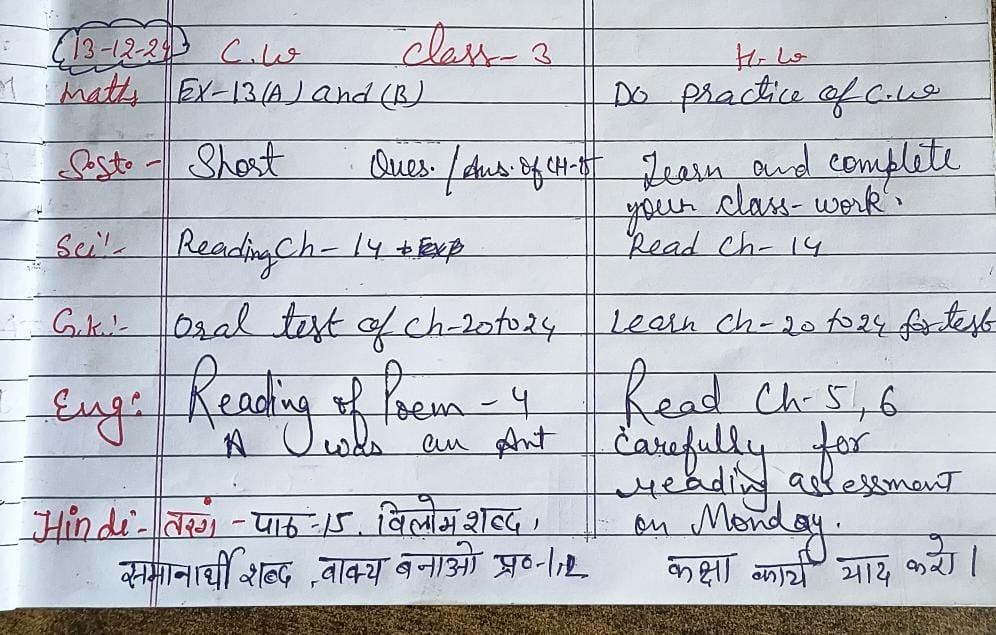 13-12-24 C.W Class-3 H.W
Maths EX-13(A) and (B) Do practice of C.W
S.St. - Short Ques. / Ans. of CH-15 Learn and complete
your class-work.
Sci:- Reading Ch-14 Read Ch-14
G.k.:- Oral test of ch-20 to 24 Learn ch-20 to 24 for test
Eng: Reading of Poem-4 Read Ch-5,6
A was an Ant carefully for
reading assessment
Hindi- तरंग - पाठ-15. विलोम शब्द, on Monday.
समानार्थी शब्द, वाक्य बनाओ प्र०-1,2 कक्षा कार्य याद करो।